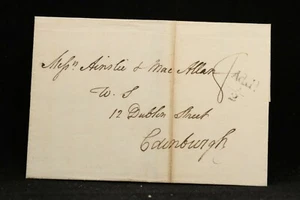 Messrs Ainslie & Mac Allan
W. S
12 Dublin Street
Edinburgh